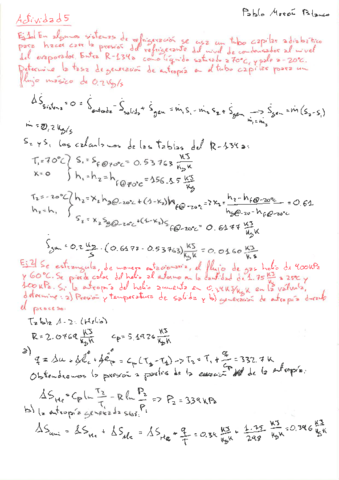 Pablo Morón Blanco
Actividad 5
Ej.1) En algunos sistemas de refrigeración se usa un tubo capilar adiabático
para hacer caer la presión del refrigerante del nivel de condensador al nivel
del evaporador. Entra R-134a como líquido saturado a 70°C, y sale a -20°C.
Determine la tasa de generación de entropía en el tubo capilar para un
flujo másico de 0,2 kg/s
ΔS sistema = 0 = Ṡ entrada - Ṡ salida + Ṡgen = ṁ₁s₁ - ṁ₂s₂ + Ṡgen → Ṡgen = ṁ(s₂-s₁)
ṁ₁=ṁ₂
ṁ = 0,2 kg/s
S₂ y S₁ las calculamos de las tablas del R-134a:
T₁=70°C } S₁ = Sf@70°C = 0.53763 KJ/KgK
x=0 } h₁ = h₂ = hf@70°C = 156.15 KJ/Kg
T₂=-20°C } h₂ = x₂hg@-20°C + (1-x₂)hf@-20°C => x₂ = h₂-hf@-20°C / hg@-20 - hf@-20°C = 0.61
h₂=h₁ } S₂ = x₂Sg@-20°C + (1-x₂)Sf@-20°C = 0.6177 KJ/KgK
Ṡgen = 0,2 kg/s · (0.6177 - 0.53763) KJ/KgK = 0.0160 KJ/K·s
Ej.2) Se estrangula, de manera estacionaria, el flujo de gas helio de 400KPa
y 60°C. Se pierde calor del helio al entorno en la cantidad de 1.75 KJ/Kg a 25°C y
100KPa. Si la entropía del helio aumenta en 0,34KJ/KgK en la válvula,
determine: a) Presión y temperatura de salida y b) generación de entropía durante
el proceso.
Tabla 1.2. (Helio)
R = 2.0769 KJ/KgK Cp = 5.1926 KJ/KgK
a)
Obtendremos la presión a partir de la ecuación de la entropía:
ΔS He = Cp ln T₂/T₁ - R ln P₂/P₁ → P₂ = 339 KPa
b) la entropía generada será: